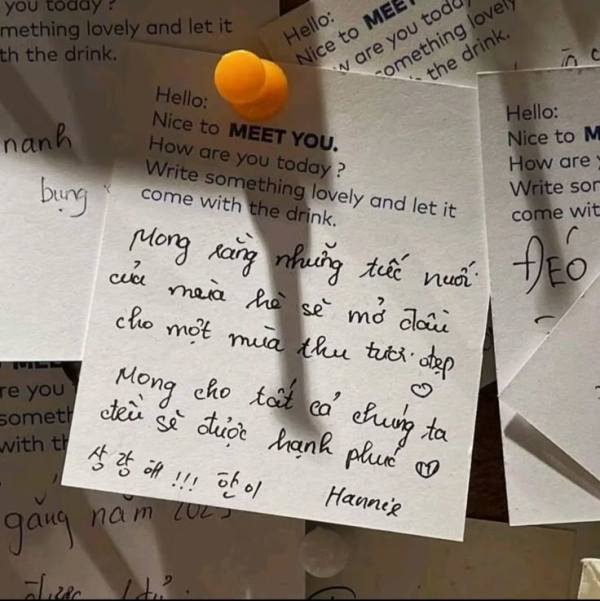 you today ?
mething lovely and let it
th the drink.
nanh
bụng
Hello:
Nice to MEET
w are you today
omething lovely
the drink.
Hello:
Nice to MEET YOU.
How are you today ?
Write something lovely and let it
come with the drink.
Mong rằng những tiếc nuối
của mùa hè sẽ mở đầu
cho một mùa thu tươi đẹp
Mong cho tất cả chúng ta
đều sẽ được hạnh phúc
상랑해 !!! 한이 Hannie
Hello:
Nice to M
How are y
Write som
come wit
ĐÉO
re you
someth
with th
gắng năm 2023